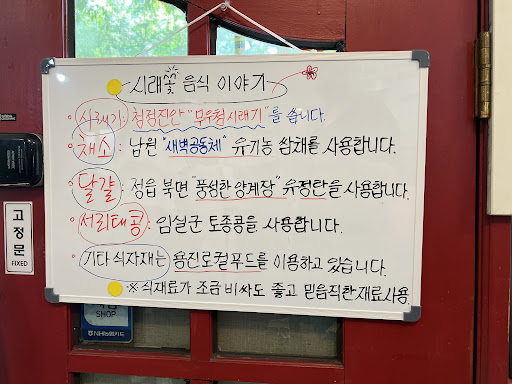 시래꽃 음식 이야기
시래기: 청정진안 "무우청시래기"를 씁니다.
채소: 남원 "새벽공동체" 유기농 쌈채를 사용합니다.
달걀: 정읍 북면 "풍성한 양계장" 유정란을 사용합니다.
서리태콩: 임실군 토종콩을 사용합니다.
기타 식자재는 용진로컬푸드를 이용하고 있습니다.
※ 식재료가 조금 비싸도 좋고 믿음직한재료사용.
고정문
FIXED
SHOP
NH농협카드